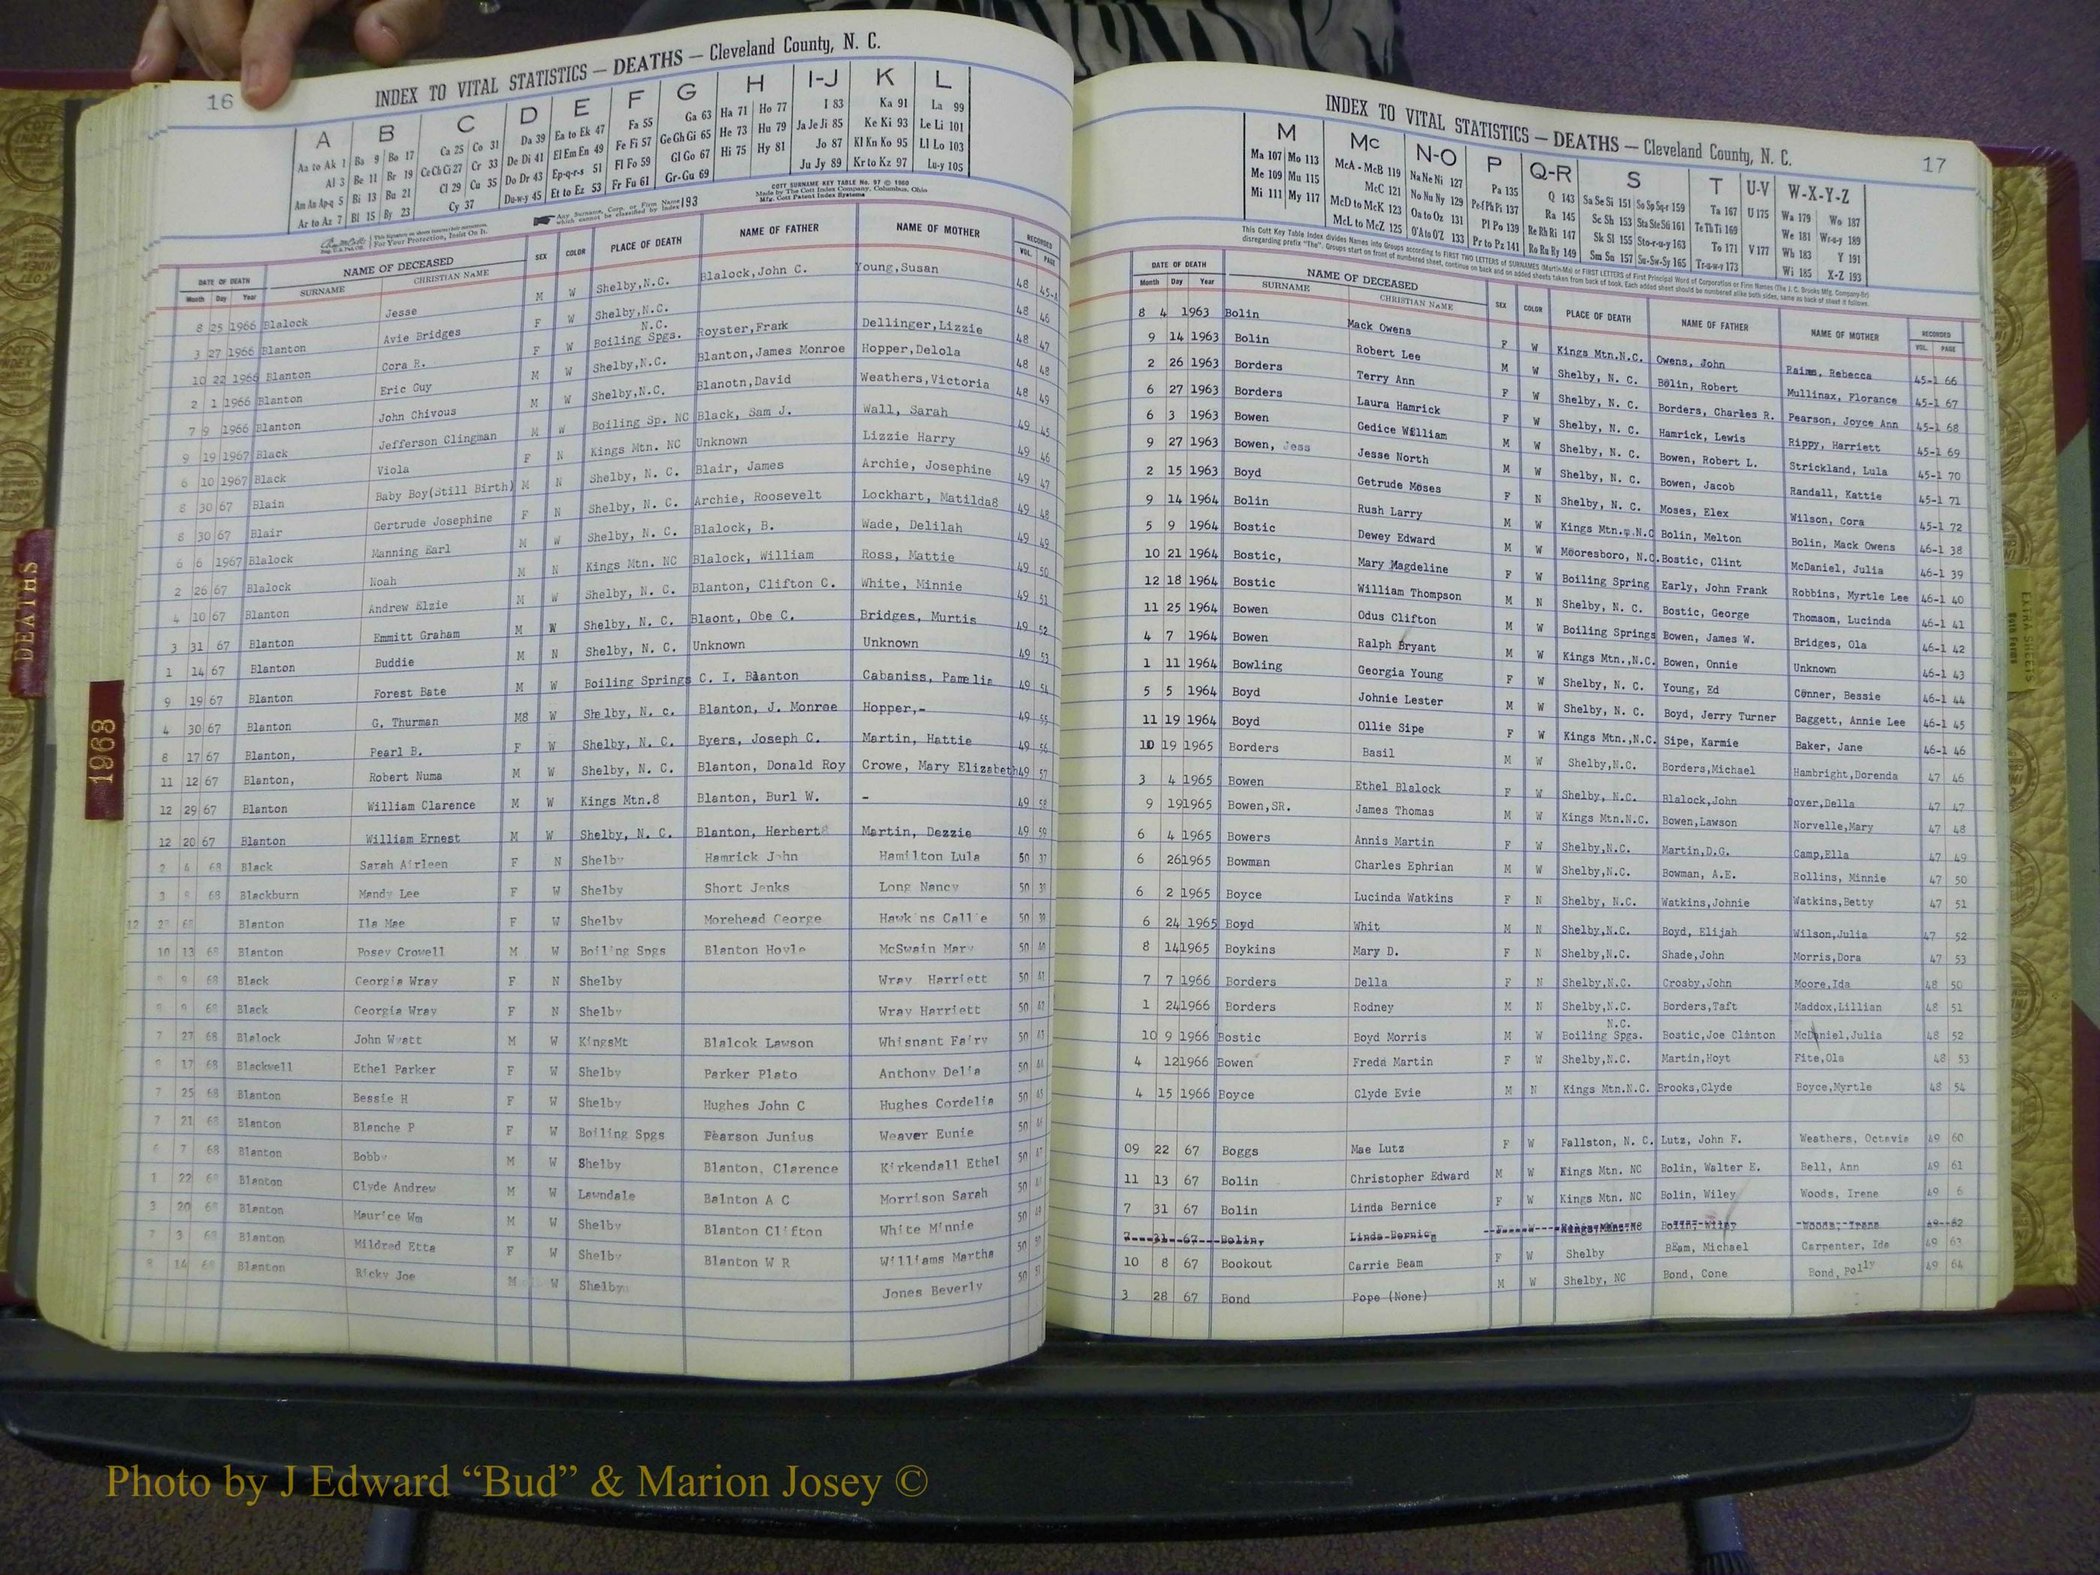 16
INDEX TO VITAL STATISTICS — DEATHS — Cleveland County, N. C.
A B C D E F G H I-J K L
Aa to Ak 1 Ba 9 Bo 17 Ca 25 Co 31 Da 39 Ea to Ek 47 Fa 55 Ga 63 Ha 71 Ho 77 I 83 Ka 91 La 99
Al 3 Be 11 Br 19 Ce Ch Ci 27 Cr 33 De Di 41 El Em En 49 Fe Fi 57 Ge Gh Gi 65 He 73 Hu 79 Ja Je Ji 85 Ke Ki 93 Le Li 101
Am An Ap-q 5 Bi 13 Bu 21 Cl 29 Cu 35 Do Dr 43 Ep-q-r-s 51 Fl Fo 59 Gl Go 67 Hi 75 Hy 81 Jo 87 Kl Kn Ko 95 Ll Lo 103
Ar to Az 7 Bl 15 By 23 Cy 37 Du-w-y 45 Et to Ez 53 Fr Fu 61 Gr-Gu 69 Ju Jy 89 Kr to Kz 97 Lu-y 105
COTT SURNAME KEY TABLE No. 97 © 1960
Made by The Cott Index Company, Columbus, Ohio
Mfg. Cott Patent Index Systems
For Your Protection, Insist On It.
Any Surname, Corp. or Firm Name which cannot be classified by Index 193
DATE OF DEATH NAME OF DECEASED SEX COLOR PLACE OF DEATH NAME OF FATHER NAME OF MOTHER RECORDED
Month Day Year SURNAME CHRISTIAN NAME VOL. PAGE
8 25 1966 Blalock Jesse M W Shelby,N.C. Blalock,John C. Young,Susan 48 45-A
3 27 1966 Blanton Avie Bridges F W Shelby,N.C. 48 46
10 22 1966 Blanton Cora R. F W N.C. Boiling Spgs. Royster,Frank Dellinger,Lizzie 48 47
2 1 1966 Blanton Eric Guy M W Shelby,N.C. Blanton,James Monroe Hopper,Delola 48 48
7 9 1966 Blanton John Chivous M W Shelby,N.C. Blanotn,David Weathers,Victoria 48 49
9 19 1967 Black Jefferson Clingman M W Boiling Sp. NC Black, Sam J. Wall, Sarah 49 45
6 10 1967 Black Viola F N Kings Mtn. NC Unknown Lizzie Harry 49 46
8 30 67 Blain Baby Boy(Still Birth) M N Shelby, N. C. Blair, James Archie, Josephine 49 47
8 30 67 Blair Gertrude Josephine F N Shelby, N. C. Archie, Roosevelt Lockhart, Matilda8 49 48
6 6 1967 Blalock Manning Earl M W Shelby, N. C. Blalock, B. Wade, Delilah 49 49
2 26 67 Blalock Noah M N Kings Mtn. NC Blalock, William Ross, Mattie 49 50
4 10 67 Blanton Andrew Elzie M W Shelby, N. C. Blanton, Clifton C. White, Minnie 49 51
3 31 67 Blanton Emmitt Graham M W Shelby, N. C. Blaont, Obe C. Bridges, Murtis 49 52
1 14 67 Blanton Buddie M N Shelby, N. C. Unknown Unknown 49 53
9 19 67 Blanton Forest Bate M W Boiling Springs C. I. Blanton Cabaniss, Pamelia 49 54
4 30 67 Blanton G. Thurman M8 W Shelby, N. c. Blanton, J. Monroe Hopper,- 49 55
8 17 67 Blanton, Pearl B. F W Shelby, N. C. Byers, Joseph C. Martin, Hattie 49 56
11 12 67 Blanton, Robert Numa M W Shelby, N. C. Blanton, Donald Roy Crowe, Mary Elizabeth 49 57
12 29 67 Blanton William Clarence M W Kings Mtn.8 Blanton, Burl W. - 49 58
12 20 67 Blanton William Ernest M W Shelby, N. C. Blanton, Herbert8 Martin, Dezzie 49 59
2 4 68 Black Sarah Airleen F N Shelby Hamrick John Hamilton Lula 50 37
3 68 Blackburn Mandy Lee F W Shelby Short Jenks Long Nancy 50 38
12 68 Blanton Ila Mae F W Shelby Morehead George Hawkins Callie 50 39
10 13 68 Blanton Posey Crowell M W Boiling Spgs Blanton Hoyle McSwain Mary 50 40
9 68 Black Georgia Wray F N Shelby Wray Harriett 50 41
9 68 Black Georgia Wray F N Shelby Wray Harriett 50 42
7 27 68 Blalock John Wyatt M W KingsMt Blalcok Lawson Whisnant Fairy 50 43
17 68 Blackwell Ethel Parker F W Shelby Parker Plato Anthony Delia 50 44
7 25 68 Blanton Bessie H F W Shelby Hughes John C Hughes Cordelia 50 45
7 21 68 Blanton Blanche P F W Boiling Spgs Pearson Junius Weaver Eunie 50 46
6 7 68 Blanton Bobby M W Shelby Blanton, Clarence Kirkendall Ethel 50 47
1 22 68 Blanton Clyde Andrew M W Lawndale Balnton A C Morrison Sarah 50 48
3 20 68 Blanton Maurice Wm M W Shelby Blanton Clifton White Minnie 50 49
7 3 68 Blanton Mildred Etta F W Shelby Blanton W R Williams Martha 50 50
8 14 68 Blanton Ricky Joe M W Shelby Jones Beverly 50 51
INDEX TO VITAL STATISTICS — DEATHS — Cleveland County, N. C.
17
M Mc N-O P Q-R S T U-V W-X-Y-Z
Ma 107 Mo 113 McA - McB 119 Na Ne Ni 127 Pa 135 Q 143 Sa Se Si 151 So Sp Sq-r 159 Ta 167 U 175 Wa 179 Wo 187
Me 109 Mu 115 McC 121 No Nu Ny 129 Pe-f Ph Pi 137 Ra 145 Sc Sh 153 Sta Ste Sti 161 Te Th Ti 169 We 181 Wr-u-y 189
Mi 111 My 117 McD to McK 123 Oa to Oz 131 Pl Po 139 Re Rh Ri 147 Sk Sl 155 Sto-r-u-y 163 To 171 V 177 Wh 183 Y 191
McL to McZ 125 O'A to O'Z 133 Pr to Pz 141 Ro Ru Ry 149 Sm Sn 157 Su-Sw-Sy 165 Tr-u-w-y 173 Wi 185 X-Z 193
This Cott Key Table Index divides Names into Groups according to FIRST TWO LETTERS of SURNAMES (Martin-Ma) or FIRST LETTERS of First Principal Word of Corporation or Firm Names (The J. C. Brooks Mfg. Company-Br)
disregarding prefix "The". Groups start on front of numbered sheet, continue on back and on added sheets taken from back of book. Each added sheet should be numbered alike both sides, same as back of sheet it follows.
DATE OF DEATH NAME OF DECEASED SEX COLOR PLACE OF DEATH NAME OF FATHER NAME OF MOTHER RECORDED
Month Day Year SURNAME CHRISTIAN NAME VOL. PAGE
8 4 1963 Bolin Mack Owens F W Kings Mtn.N.C. Owens, John Rains, Rebecca 45-1 66
9 14 1963 Bolin Robert Lee M W Shelby, N. C. Bolin, Robert Mullinax, Florance 45-1 67
2 26 1963 Borders Terry Ann F W Shelby, N. C. Borders, Charles R. Pearson, Joyce Ann 45-1 68
6 27 1963 Borders Laura Hamrick F W Shelby, N. C. Hamrick, Lewis Rippy, Harriett 45-1 69
6 3 1963 Bowen Gedice William M W Shelby, N. C. Bowen, Robert L. Strickland, Lula 45-1 70
9 27 1963 Bowen, Jess Jesse North M W Shelby, N. C. Bowen, Jacob Randall, Kattie 45-1 71
2 15 1963 Boyd Getrude Moses F N Shelby, N. C. Moses, Elex Wilson, Cora 45-1 72
9 14 1964 Bolin Rush Larry M W Kings Mtn., N.C Bolin, Melton Bolin, Mack Owens 46-1 38
5 9 1964 Bostic Dewey Edward M W Mooresboro, N.C. Bostic, Clint McDaniel, Julia 46-1 39
10 21 1964 Bostic, Mary Magdeline F W Boiling Spring Early, John Frank Robbins, Myrtle Lee 46-1 40
12 18 1964 Bostic William Thompson M N Shelby, N. C. Bostic, George Thomsom, Lucinda 46-1 41
11 25 1964 Bowen Odus Clifton M W Boiling Springs Bowen, James W. Bridges, Ola 46-1 42
4 7 1964 Bowen Ralph Bryant M W Kings Mtn.,N.C. Bowen, Onnie Unknown 46-1 43
1 11 1964 Bowling Georgia Young F W Shelby, N. C. Young, Ed Conner, Bessie 46-1 44
5 5 1964 Boyd Johnie Lester M W Shelby, N. C. Boyd, Jerry Turner Baggett, Annie Lee 46-1 45
11 19 1964 Boyd Ollie Sipe F W Kings Mtn.,N.C. Sipe, Karmie Baker, Jane 46-1 46
10 19 1965 Borders Basil M W Shelby,N.C. Borders,Michael Hambright,Dorenda 47 46
3 4 1965 Bowen Ethel Blalock F W Shelby, N.C. Blalock,John Dover,Della 47 47
9 19 1965 Bowen,SR. James Thomas M W Kings Mtn.N.C. Bowen,Lawson Norvelle,Mary 47 48
6 4 1965 Bowers Annis Martin F W Shelby,N.C. Martin,D.G. Camp,Ella 47 49
6 26 1965 Bowman Charles Ephrian M W Shelby,N.C. Bowman, A.E. Rollins, Minnie 47 50
6 2 1965 Boyce Lucinda Watkins F N Shelby, N.C. Watkins,Johnie Watkins,Betty 47 51
6 24 1965 Boyd Whit M N Shelby,N.C. Boyd, Elijah Wilson,Julia 47 52
8 14 1965 Boykins Mary D. F N Shelby,N.C. Shade,John Morris,Dora 47 53
7 7 1966 Borders Della F N Shelby,N.C. Crosby,John Moore,Ida 48 50
1 24 1966 Borders Rodney M N Shelby,N.C. Borders,Taft Maddox,Lillian 48 51
10 9 1966 Bostic Boyd Morris M W N.C. Boiling Spgs. Bostic,Joe Clinton McDaniel,Julia 48 52
4 12 1966 Bowen Freda Martin F W Shelby,N.C. Martin,Hoyt Fite,Ola 48 53
4 15 1966 Boyce Clyde Evie M N Kings Mtn.N.C. Brooks,Clyde Boyce,Myrtle 48 54
09 22 67 Boggs Mae Lutz F W Fallston, N. C. Lutz, John F. Weathers, Octavia 49 60
11 13 67 Bolin Christopher Edward M W Kings Mtn. NC Bolin, Walter E. Bell, Ann 49 61
7 31 67 Bolin Linda Bernice F W Kings Mtn. NC Bolin, Wiley Woods, Irene 49 6
7 31 67 Bolin, Linda Bernice F W Kings Mtn. NC Bolin, Wiley Woods, Irene 49 62
10 8 67 Bookout Carrie Beam F W Shelby Beam, Michael Carpenter, Ida 49 63
3 28 67 Bond Pope (None) M W Shelby, NC Bond, Cone Bond, Polly 49 64
DEATHS
1968
EXTRA SHEETS
Photo by J Edward “Bud” & Marion Josey ©